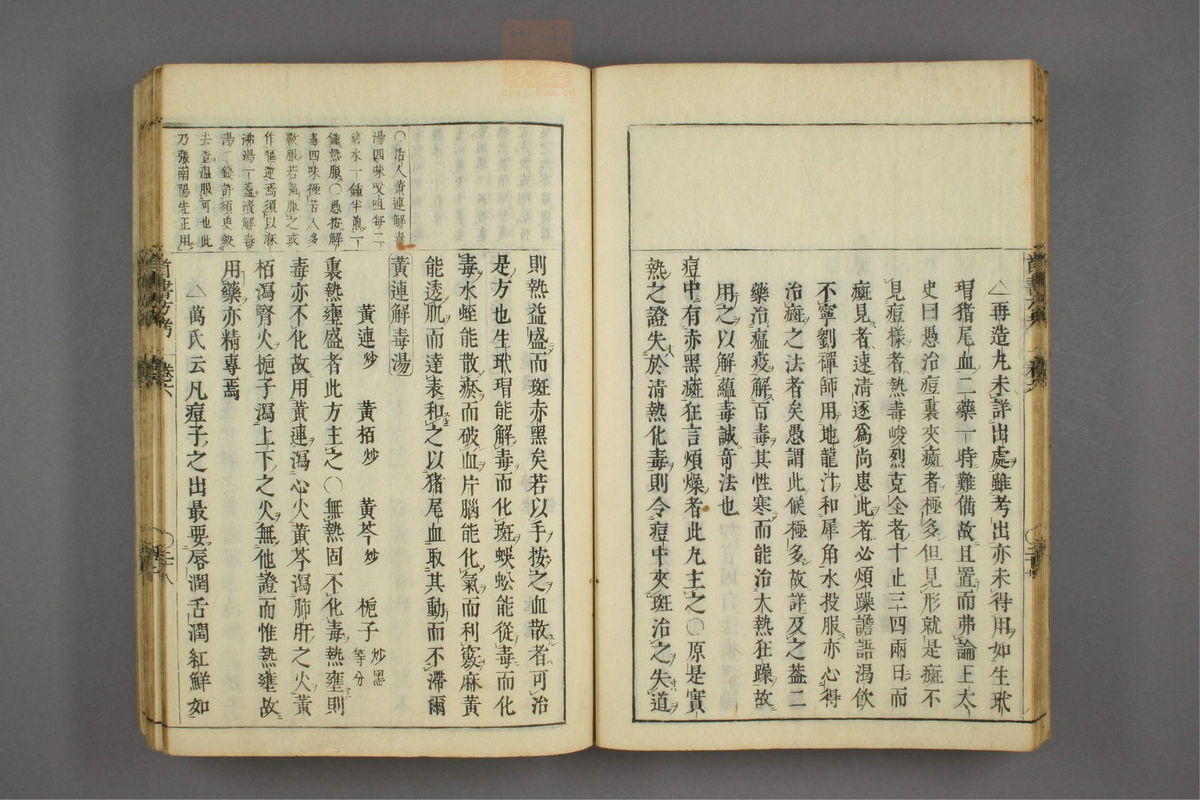 △再造丸未詳出處雖考出亦未得用如生玳
瑁猪尾血二藥一時難備故且置而弗論王太
史曰愚治痘裏夾癍者極多但見形就是癍不
見痘樣者熱毒峻烈克全者十止三四兩日而
癍見者速清逐爲尚患此者必煩躁譫語渴飲
不寧劉禪師用地龍汁和犀角水投服亦心得
治癍之法者矣愚謂此候極多故詳及之蓋二
藥治瘟疫解百毒其性寒而能治大熱狂躁故
用之以解蘊毒誠奇法也
痘中有赤黑癍狂言煩燥者此丸主之○原是實
熱之證失於清熱化毒則令痘中夾斑治之失道
則熱益盛而斑赤黑矣若以手按之血散者可治
是方也生玳瑁能解毒而化斑蜈蚣能從毒而化
毒水蛭能散瘀而破血片腦能化氣而利竅麻黃
能透肌而達表和之以猪尾血取其動而不滯爾
黃連解毒湯
黃連炒 黃栢炒 黃芩炒 梔子炒黑等分
裏熱壅盛者此方主之○無熱固不化毒熱壅則
毒亦不化故用黃連瀉心火黃芩瀉肺肝之火黃
栢瀉腎火梔子瀉上下之火無他證而惟熱壅故
用藥亦精專焉
△萬氏云凡痘子之出最要唇潤舌潤紅鮮如
○活人黃連解毒
湯四味㕮咀每二
錢水一鍾半煎一
鍾熱服○愚按解
毒四味極苦人多
數服若過服之或
作嘔逆焉須以麻
沸湯一盞漬解毒
湯一錢許須臾絞
去査溫服可也此
乃張南陽先正用
卷之六